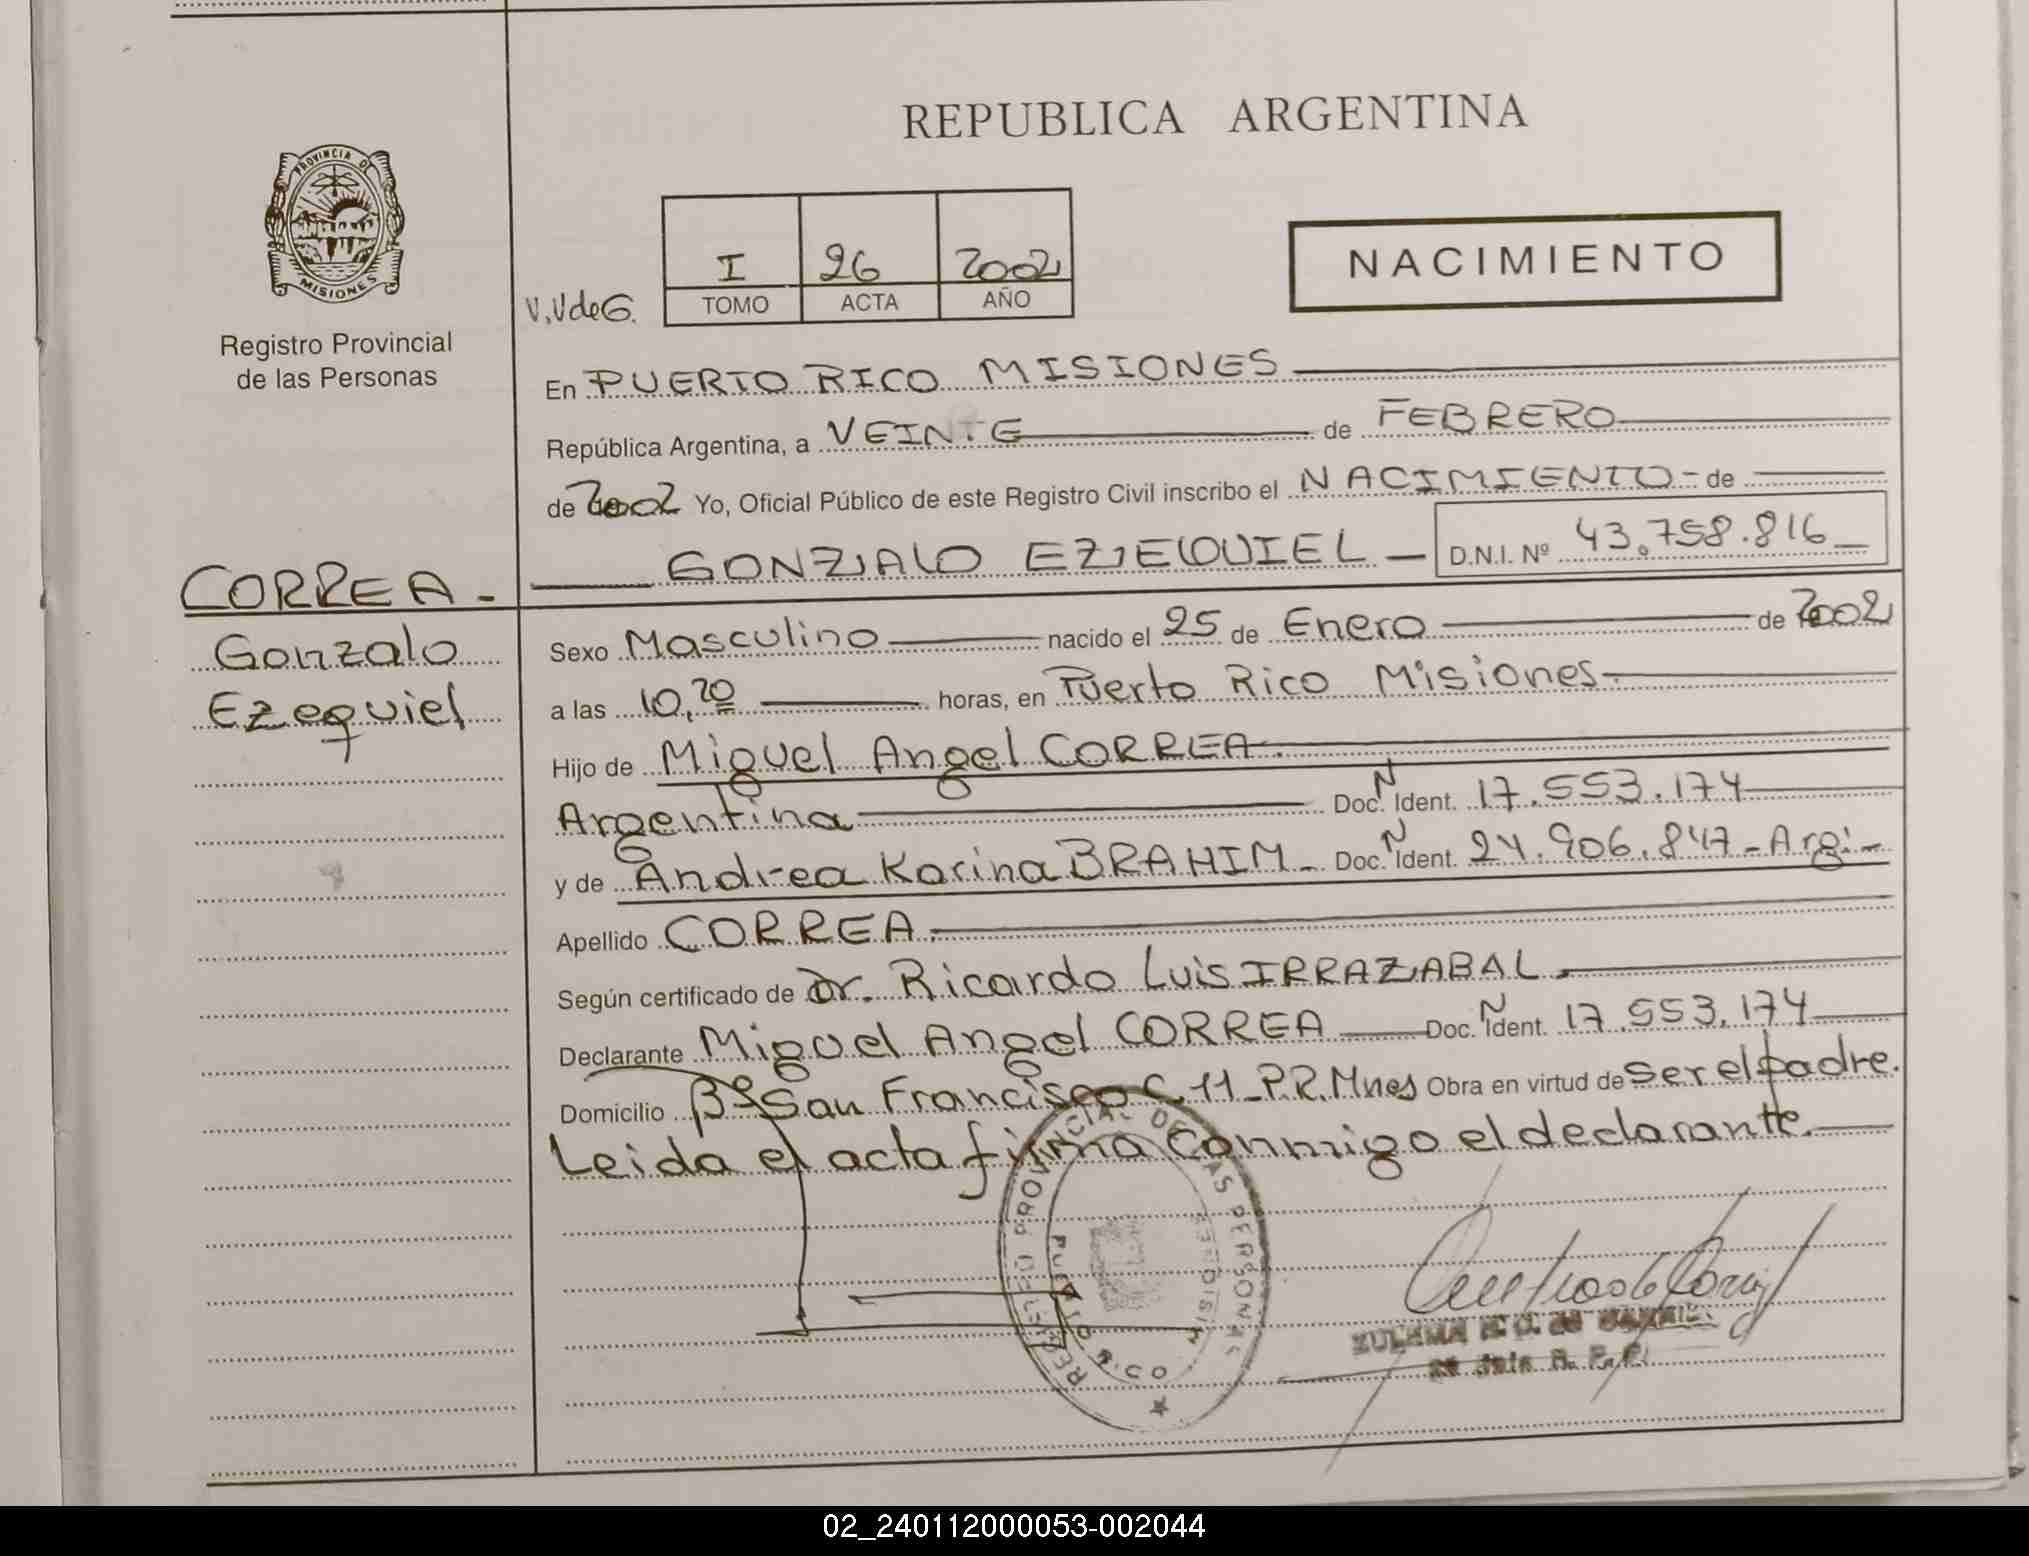 REPUBLICA ARGENTINA
PROVINCIA DE
MISIONES
Registro Provincial
de las Personas
V.VdeG.
I 26 2002
TOMO ACTA AÑO
NACIMIENTO
En PUERTO RICO MISIONES
República Argentina, a VEINTE de FEBRERO
de 2002 Yo, Oficial Público de este Registro Civil inscribo el NACIMIENTO - de
GONZALO EZEQUIEL - D.N.I. Nº 43.758.816
CORREA -
Gonzalo
Ezequiel
Sexo Masculino nacido el 25 de Enero de 2002
a las 10,20 horas, en Puerto Rico Misiones
Hijo de Miguel Angel CORREA
Argentina Doc. N Ident. 17.553.174
y de Andrea Karina BRAHIM - Doc. N Ident. 24.906.847 - Arg: -
Apellido CORREA.
Según certificado de Dr. Ricardo Luis IRRAZABAL.
Declarante Miguel Angel CORREA Doc. N Ident. 17.553.174
Domicilio Bº San Francisco C 11 - P.R. Mnes Obra en virtud de ser el padre.
Leida el acta firma conmigo el declarante.
PROVINCIAL DE LAS PERSONAS
PUERTO RICO
MISIONES
02_240112000053-002044